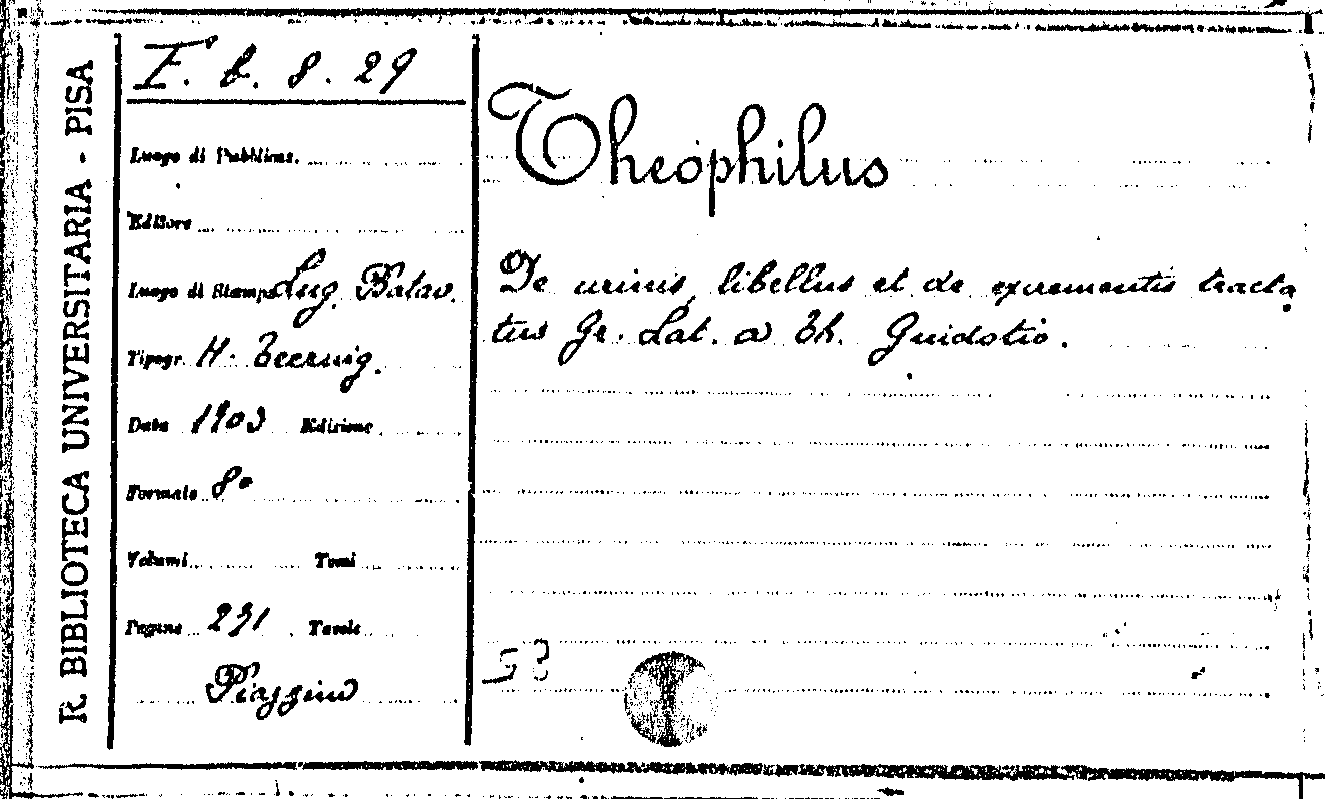 R. BIBLIOTECA UNIVERSITARIA - PISA
F. b. 8. 29
Luogo di Pubblicaz.
Editore
Luogo di Stampa Lug. Batav.
Tipogr. H. Teering.
Data 1903 Edizione
Formato 8º
Volumi Tomi
Pagine 231 Tavole
Piaggino
Theophilus
De urinis, libellus et de excrementis tracta
tus Gr. Lat. a Th. Guidotio.
53